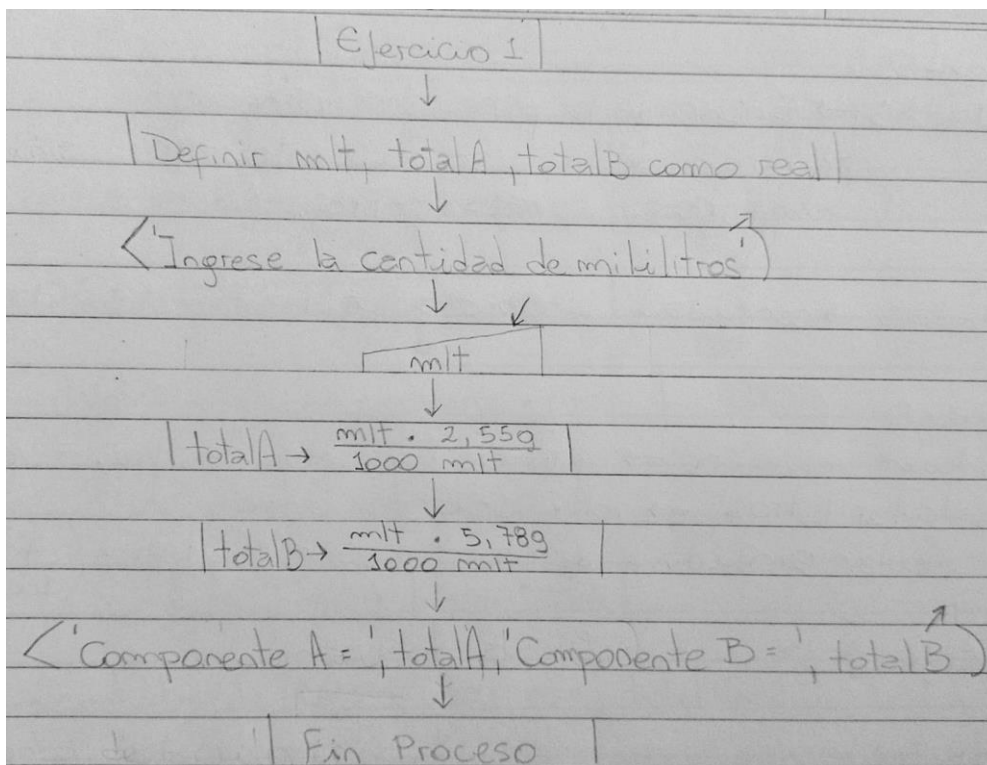 Ejercicio 1
Definir mlt, totalA, totalB como real
'Ingrese la cantidad de mililitros'
mlt
totalA → mlt . 2,55g
1000 mlt
totalB → mlt . 5,78g
1000 mlt
'Componente A = ', totalA, 'Componente B = ', totalB
Fin Proceso